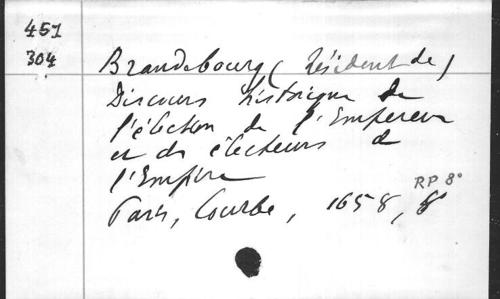 451
304
Brandebourg (Résident de)
Discours historique de
l'élection de l'Empereur
et des électeurs de
l'Empire
RP 8°
Paris, Courbe, 1658, 8°